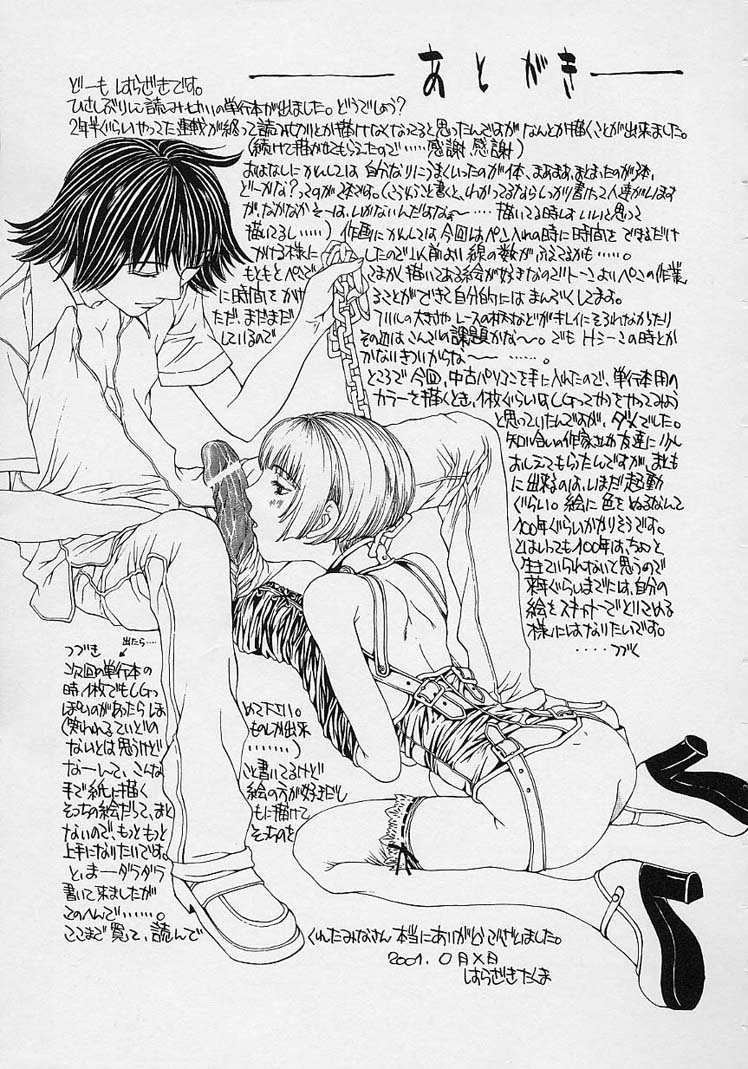 あとがき
どーも はらざきです。
ひさしぶりに読みせいの単行本が出ました。どうでしょう?
2年半ぐらいやってた連載が終って読み切りとか描けなくなってると思ったんですがなんとか描くことが出来ました。
(続けて描かせてもらえたので……感謝、感謝)
おはなしにかんしては 自分なりにうまくいったのが1本、まあまあ、まとまったのが3本、
どーかな?ってのが
が、なかなかそーは、いかないんだよなぁ〜……描いてる時はいいと思って
描いてるし……) 作画にかんしては 今回はペン入れの時に時間を できるだけ
かける様に したので以前より線の数が ふえてるかも……。
もともとペンで こまかく描いてある絵が好きなのでトーンよりペンの作業
に時間をかけ ることができて自分的には まんぞくしてます。
ただ、まだまだ フリルの大きさや レースの
しているので その辺はこんごの課題かな〜。でも Hシーンの時とか
ところで今回、中古パソコンを手に入れたので、単行本用の
カラーを描くとき、1枚ぐらいはCGってやつをやってみよう
と思っていたんですが、ダメでした。
知り合いの作家さんや友達に少し
おしえてもらったんですが、まとも
に出来るのは、いまだ起動
ぐらい。絵に色をぬるなんて
100年ぐらいかかりそうです。
とはいっても100年は、ちょっと
生きていられないと思うので
来年ぐらいまでには、自分の
絵をスキャナーでとりこめる
様にはなりたいです。
……つづく
つづき 出たら……
次回の単行本の
時1枚でもCGっ
ぽいのがあったら ほ めて下さい。
(笑われるていどの ものしか出来
ないとは思うけど ……)
なーんて、こんな こと書いてるけど
手で紙に描く 絵の方が好きだし
そっちの絵だって、まと もに描けて
ないので、もっともっと そっちのを
上手になりたいです。
とまーダラダラ
書いて来ましたが
このへんで……。
ここまで見て、読んで くれたみなさん 本当にありがとうございました。
2001. 0月×日
はらざきたくま